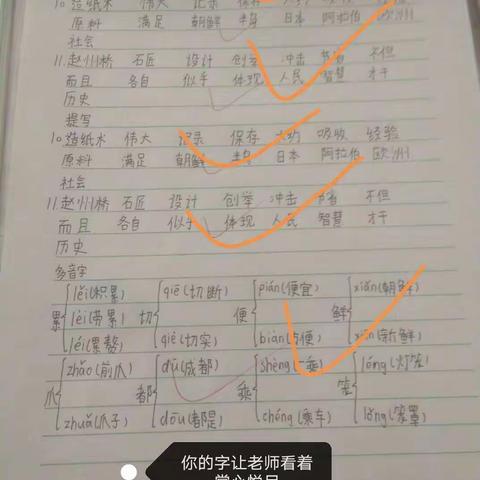 10.造纸术 伟大 记录 保存 大约 吸收 经验
原料 满足 朝鲜 半岛 日本 阿拉伯 欧洲
社会
11.赵州桥 石匠 设计 创举 冲击 节省 不但
而且 各自 似乎 体现 人民 智慧 才干
历史
提写
10.造纸术 伟大 记录 保存 大约 吸收 经验
原料 满足 朝鲜 半岛 日本 阿拉伯 欧洲
社会
11.赵州桥 石匠 设计 创举 冲击 节省 不但
而且 各自 似乎 体现 人民 智慧 才干
历史
多音字
累 lěi(积累) lèi(劳累) léi(累赘)
切 qiē(切断) qiè(切实)
便 pián(便宜) biàn(方便)
鲜 xiǎn(朝鲜) xiān(新鲜)
爪 zhǎo(前爪) zhuǎ(爪子)
都 dū(成都) dōu(都是)
乘 shèng(乘) chéng(乘车)
笼 lóng(灯笼) lǒng(笼罩)
你的字让老师看着
赏心悦目